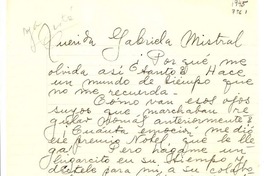 1945
Querida Gabriela Mistral
¿Por qué me
olvida así (tanto)? Hace
un mundo de tiempo que
no me recuerda.
Cómo van esos ojos
suyos que marchaban re
gular
anteriormente?
¡Cuánta emoción me dió
ese premio Nobel que le lle
ga! Pero hágame un
lugarcito en su tiempo y
dístelo para mí, a su